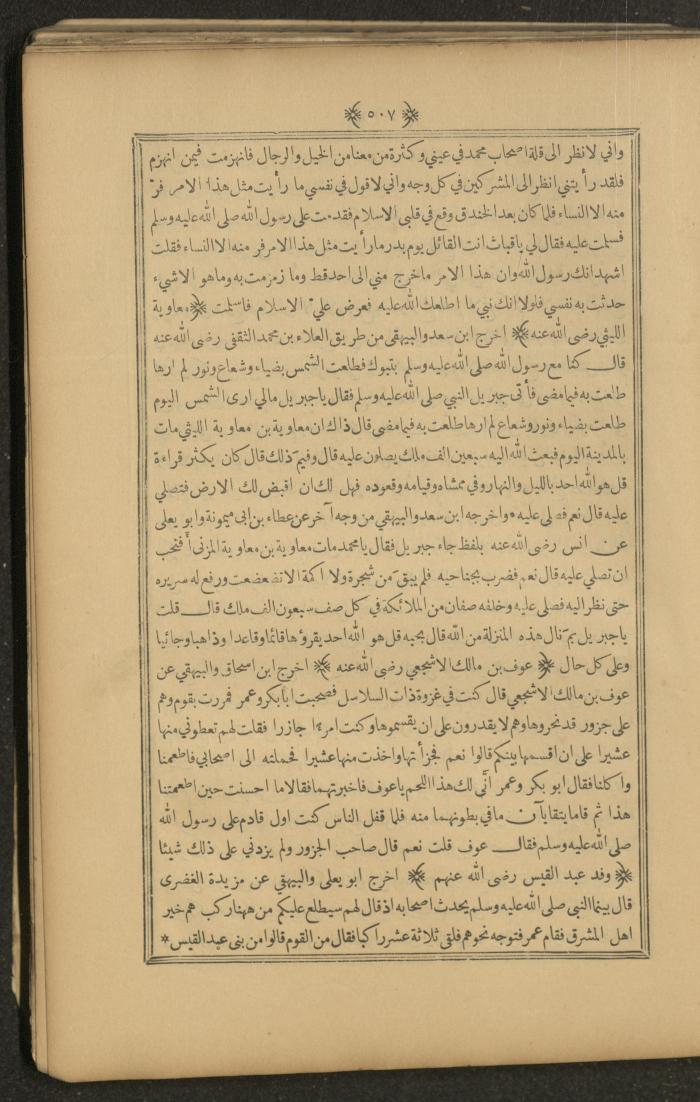 ﴿٥٠٧﴾
واني لانظر الى قلة اصحاب محمد في عيني وكثرة من معنا من الخيل والرجال فانهزمت فيمن انهزم
فلقد رأيتني انظر الى المشركين في كل وجه واني لاقول في نفسي ما رأيت مثل هذا الامر فرّ
منه الا النساء فلما كان بعد الخندق وقع في قلبي الاسلام فقدمت على رسول الله صلى الله عليه وسلم
فسلمت عليه فقال لي ياقباث انت القائل يوم بدر مارأيت مثل هذا الامر فر منه الا النساء فقلت
اشهد انك رسول الله وان هذا الامر ماخرج مني الى احد قط وما زمزمت به وما هو الا شيء
حدثت به نفسي فلولا انك نبي ما اطلعك الله عليه فعرض عليّ الاسلام فاسلمت ﴿معاوية
الليثي رضى الله عنه﴾ اخرج ابن سعد والبيهقى من طريق العلاء بن محمد الثقفى رضى الله عنه
قال كنا مع رسول الله صلى الله عليه وسلم بتبوك فطلعت الشمس بضياء وشعاع ونور لم ارها
طلعت به فيما مضى فأتى جبريل النبي صلى الله عليه وسلم فقال ياجبريل مالي ارى الشمس اليوم
طلعت بضياء ونور وشعاع لم ارها طلعت به فيما مضى قال ذاك ان معاوية بن معاوية الليثي مات
بالمدينة اليوم فبعث الله اليه سبعين الف ملك يصلون عليه قال وفيم ذلك قال كان يكثر قراءة
قل هو الله احد بالليل والنهار وفي ممشاه وقيامه وقعوده فهل لك ان اقبض لك الارض فتصلي
عليه قال نعم فصلى عليه * واخرجه ابن سعد والبيهقي من وجه آخر عن عطاء بن ابى ميمونة وابو يعلى
عن انس رضى الله عنه بلفظ جاء جبريل فقال يا محمد مات معاوية بن معاوية المزنى أفتحب
ان تصلي عليه قال نعم فضرب بجناحيه فلم يبق من شجرة ولا اكمة الا تضعضعت ورفع له سريره
حتى نظر اليه فصلى عليه وخلفه صفان من الملائكة في كل صف سبعون الف ملك قال قلت
ياجبريل بم نال هذه المنزلة من الله قال بحبه قل هو الله احد يقرؤها قائما وقاعدا وذاهبا وجائيا
وعلى كل حال ﴿عوف بن مالك الاشجعي رضى الله عنه﴾ اخرج ابن اسحاق والبيهقي عن
عوف بن مالك الاشجعي قال كنت في غزوة ذات السلاسل فصحبت ابا بكر وعمر فمررت بقوم وهم
على جزور قد نحروها وهم لا يقدرون على ان يقسموها وكنت امرءا جازرا فقلت لهم تعطوني منها
عشيرا على ان اقسمها بينكم قالوا نعم فجزأتها واخذت منها عشيرا فحملته الى اصحابي فاطعمنا
واكلنا فقال ابو بكر وعمر أنّى لك هذا اللحم ياعوف فاخبرتهما فقالا ما احسنت حين اطعمتنا
هذا ثم قاما يتقايآن مافي بطونهما منه فلما قفل الناس كنت اول قادم على رسول الله
صلى الله عليه وسلم فقال عوف قلت نعم قال صاحب الجزور ولم يزدني على ذلك شيئا
﴿وفد عبد القيس رضى الله عنهم﴾ اخرج ابو يعلى والبيهقي عن مزيدة العصرى
قال بينما النبي صلى الله عليه وسلم يحدث اصحابه اذ قال لهم سيطلع عليكم من ههنا ركب هم خير
اهل المشرق فقام عمر فتوجه نحوهم فلقى ثلاثة عشر راكبا فقال من القوم قالوا من بنى عبد القيس *